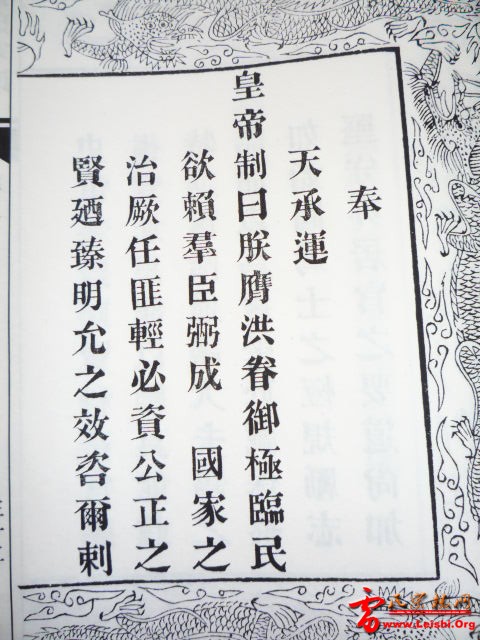 奉
天承運
皇帝制曰朕膺洪眷御極臨民
欲賴羣臣弼成 國家之
治厥任匪輕必資公正之
賢廼臻明允之效咨爾刺
www.Leisbi.Org